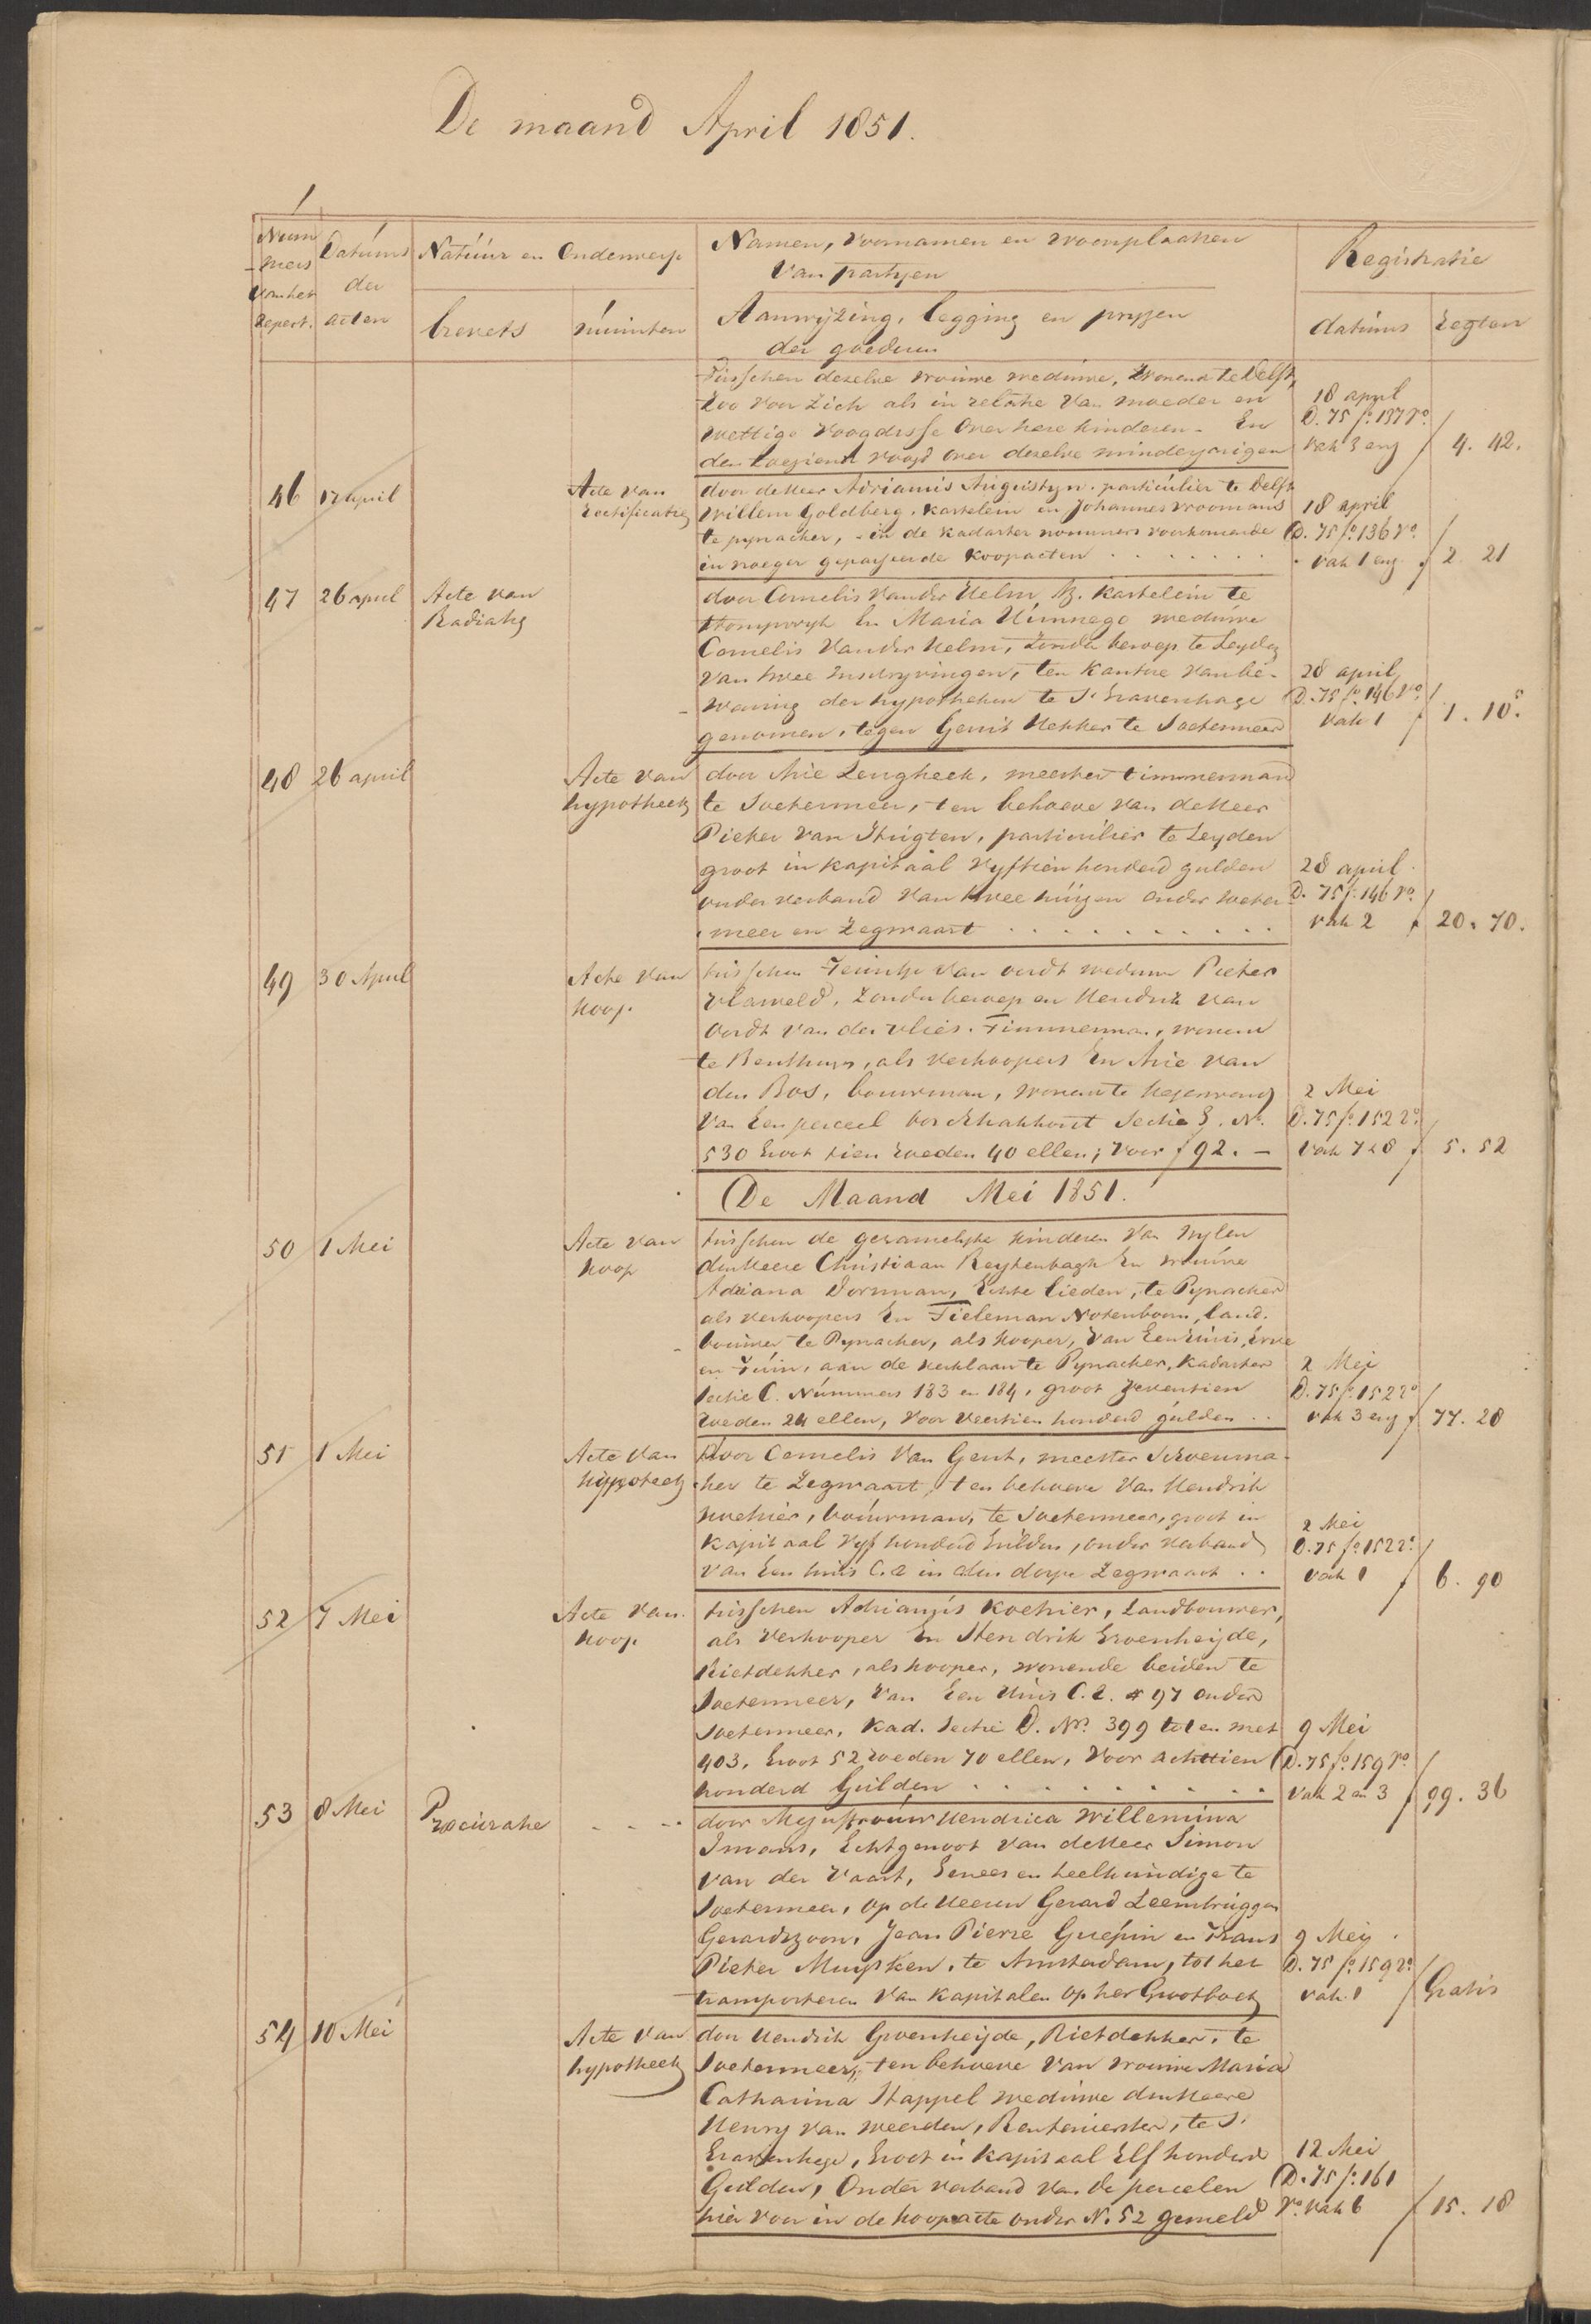 De maand April 1851.
Num
mers
van het
Repert.
Datums
der
acten
Natuur en Onderwerp
brevets
minuten
Namen, voornamen en woonplaatsen
van partyen
Aanwyzing, legging en pryzen
der goederen
Registratie
datums
regten
Tusschen dezelve vrouwe weduwe, wonend te Delft,
zoo voor zich als in relatie van moeder en
wettige voogdesse over hare kinderen. En
den toeziend voogd over dezelve minderjarigen
18 april
D. 75 fo. 137 Vo.
vak 3 env
f 4. 42.
46
17 april
Acte van
rectificatie
door de Heer Adrianus Augustyn. particulier te Delft
Willem Goldberg, kastelein en Johannes Vroomans
te pynacker, in de kadaster nommers voorkomende
in vroeger gepasseerde koopacten . . . . . . .
18 april
D. 75 fo. 136 Vo.
vak 1 env.
f 2. 21
47
26 april
Acte van
Radiatie
door Cornelis van der Helm, Az. kastelein te
Stompwyk En Maria weduwe
Cornelis van der Helm, zonder beroep te Leyden
van twee inschryvingen, ten kantore van be-
waring der hypotheken te S' Gravenhage
genomen, tegen Gerrit Hekker te Soetermeer
28 april
D. 75 fo. 146 Vo.
vak 1
f 1. 10.5
48
26 april
Acte van
hypotheek
door Arie Lengkeek, meester timmerman
te Soetermeer, ten behoeve van de Heer
Pieter van Strigten, particulier te Leyden
groot in kapitaal vyftien honderd gulden
onder verband van twee huizen onder Soeter-
meer en Zegwaart . . . . . . . . . .
28 april
D. 75 fo. 146 Vo.
vak 2
f 20. 70.
49
30 April
Acte van
koop.
tusschen Teuntje van Oordt weduwe Pieter
Vlasveld, zonder beroep en Hendrik van
Oordt van der Vlies. Timmerman, wonende
te Benthuyzen, als verkoopers En Arie van
den Bos, bouwman, wonende te Hazerswoude
van Een perceel bosch hakhout Sectie No.
530 Groot tien roeden 40 ellen, voor f 92. —
2 Mei
D. 75 fo. 152 ro.
vak 7 & 8
f 5. 52
De Maand Mei 1851.
50
1 Mei
Acte van
koop
tusschen de gezamelyke kinderen van wylen
den Heere Christiaan Reytenbagh En vrouwe
Adriana Dorsman, Echte lieden, te Pynacker
als verkoopers En Tieleman Notenboom, land-
bouwer te Pynacker, als kooper, van Een Huis, Erve
en Tuin, aan de kerklaan te Pynacker, kadaster
Sectie C. Nummers 183 en 184, groot zeventien
roeden 24 ellen, voor veertien honderd gulden . .
2 Mei
D. 75 fo. 152 ro
vak 3 env
f 77. 28
51
1 Mei
Acte van
hypotheek
Door Cornelis van Gent, meester Schoenma-
ker te Zegwaart, ten behoeve van Hendrik
Koehier, bouwman, te Soetermeer, groot in
kapitaal Vyf honderd Gulden, onder verband
van Een huis C.a in den dorpe Zegwaart . .
2 Mei
D. 75 fo. 152 ro.
vak 1
f 6. 90
52
7 Mei
Acte van
koop
tusschen Adrianus Koehier, Landbouwer,
als verkooper En Hendrik Groenheijde,
Rietdekker, als kooper, wonende beiden te
Soetermeer, van Een Huis C.a. # 97 onder
Soetermeer, Kad. Sectie D. No. 399 tot en met
403, Groot 52 roeden 70 ellen, voor achttien
honderd Gulden . . . . . . . . . .
9 Mei
D. 75 fo. 159 Vo
vak 2 en 3
f 99. 36
53
8 Mei
Procuratie
door Mejuffrouw Hendrica Willemina
Imans, Echtgenoot van de Heer Simon
van der Vaart, Genees en heelkundige te
Soetermeer, op de Heeren Gerard Leembruggen
Gerardszoon, Jean Pierre Guépin en Frans
Pieter Muysken, te Amsterdam, tot het
transporteren van kapitalen op het Grootboek
9 Mey
D. 75 fo. 159 ro.
vak 1
Gratis
54
10 Mei
Acte van
hypotheek
door Hendrik Groenheijde, Rietdekker, te
Soetermeer, ten behoeve van vrouwe Maria
Catharina Stappel weduwe den Heere
Henry van Weerden, Rentenierster, te S'
Gravenhage, Groot in kapitaal Elf honderd
Gulden, Onder verband van de percelen
hier voor in de koopacte onder No. 52 gemeld
12 Mei
D. 75 fo. 161
Vo. vak 6
f 15. 18